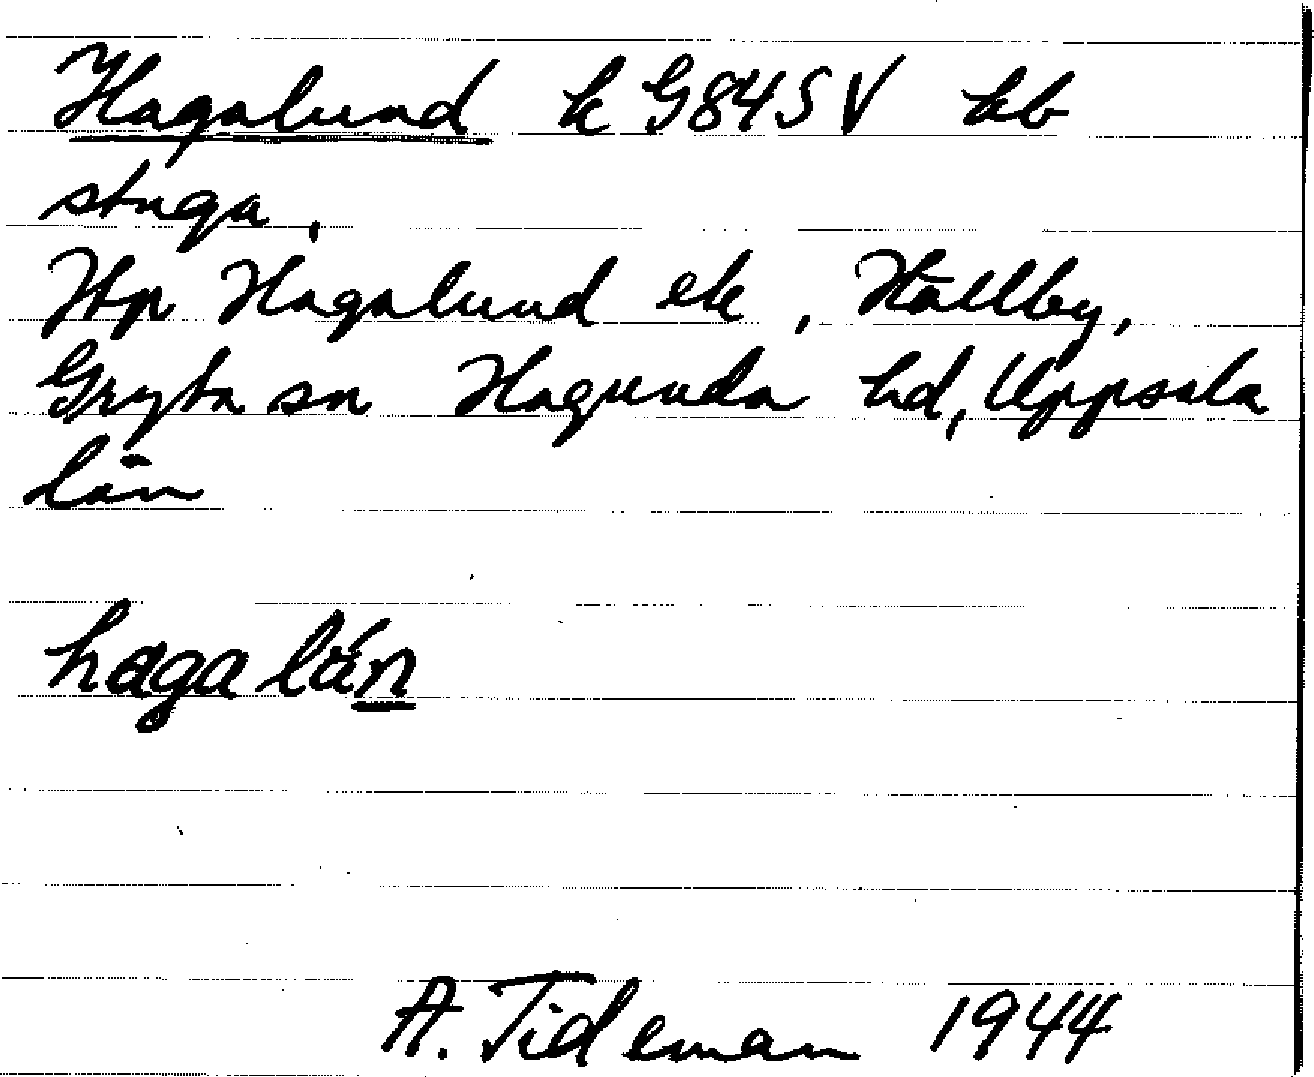 Hagalund k G84SV kb
stuga,
Jfp Hagalund ek, Hällby,
Gryta sn Hagunda hd, Uppsala
län
hagalán
A. Tideman 1944